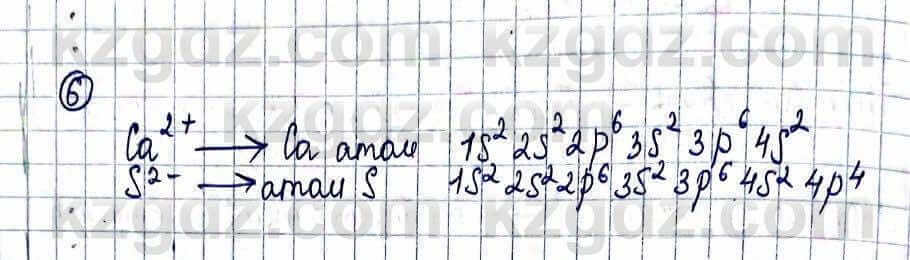 kzgdz.com kzgdz.com
⑥
Ca²⁺ → Ca атом 1s² 2s² 2p⁶ 3s² 3p⁶ 4s²
S²⁻ → атом S 1s² 2s² 2p⁶ 3s² 3p⁶ 4s² 4p⁴
kzgdz.com kzgdz.com